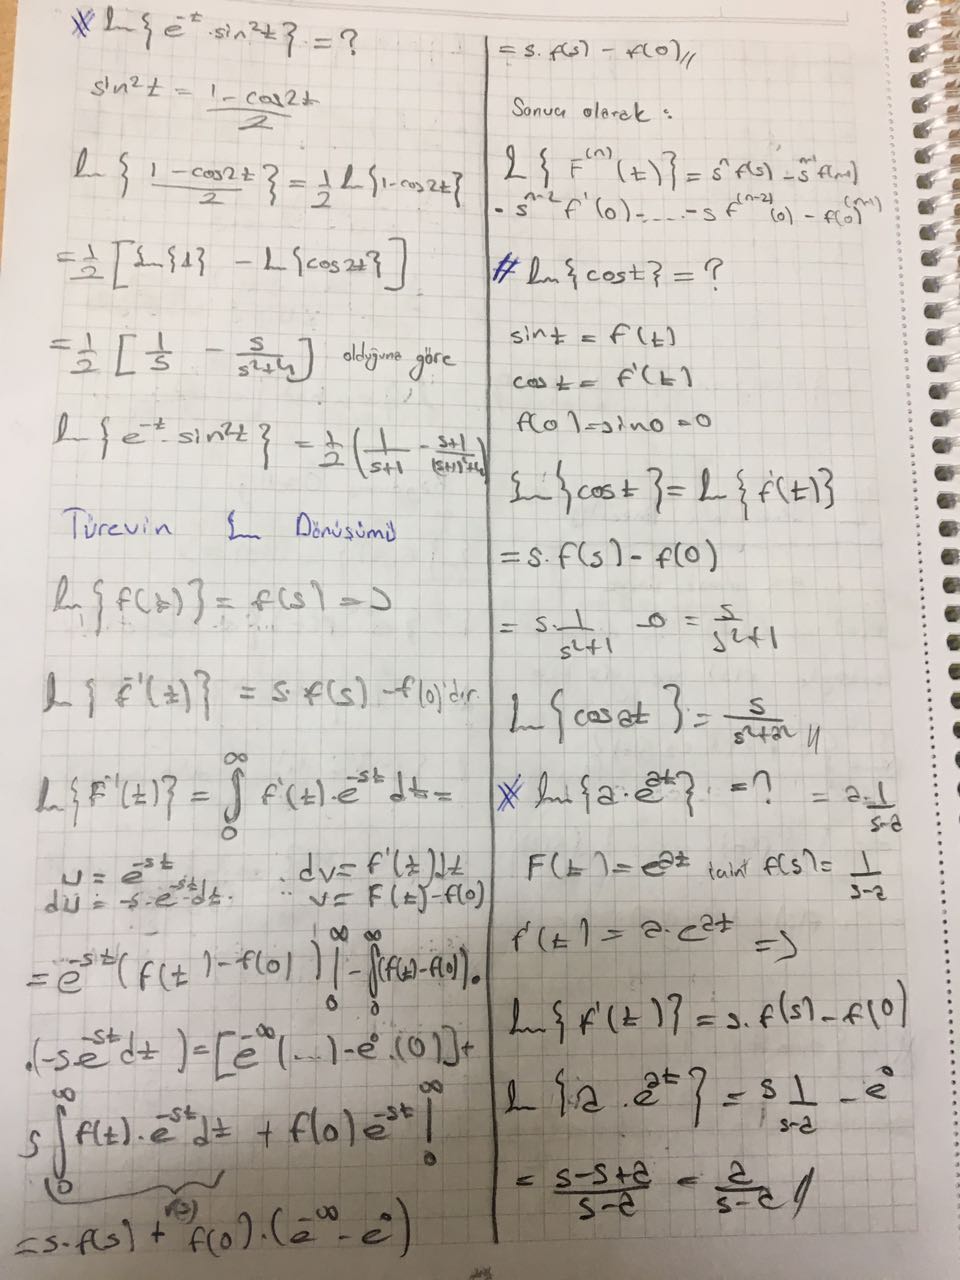 * ℒ{e^-t · sin²t} = ?
sin²t = (1 - cos2t)/2
ℒ{(1 - cos2t)/2} = 1/2 ℒ{1-cos2t}
= 1/2 [ℒ{1} - ℒ{cos2t}]
= 1/2 [1/s - s/(s²+4)] olduğuna göre
ℒ{e^-t · sin²t} = 1/2 (1/(s+1) - (s+1)/((s+1)²+4))
Türevin ℒ Dönüşümü
ℒ{f(t)} = f(s) =>
ℒ{F'(t)} = s·f(s) - f(0)'dır.
ℒ{F'(t)} = ∫₀^∞ f'(t)·e^-st dt =
u = e^-st dv = f'(t)dt
du = -s·e^-st dt. v = F(t)-f(0)
= e^-st (f(t) - f(0)) |₀^∞ - ∫₀^∞ (f(t)-f(0)).
.(-s·e^-st dt) = [e^-∞ (...) - e⁰.(0)] +
s ∫₀^∞ f(t)·e^-st dt + f(0) e^-st |₀^∞
f(s)
= s·f(s) + f(0)·(e^-∞ - e⁰)
= s·f(s) - f(0)//
Sonuç olarak :
ℒ{F^(n)(t)} = s^n f(s) - s^n-1 f(n-1)
- s^n-2 f'(0) - ..... - s f^(n-2)(0) - f(0)^(n-1)
# ℒ{cost} = ?
sint = f(t)
cost = f'(t)
f(0) = sin0 = 0
ℒ{cost} = ℒ{f'(t)}
= s·f(s) - f(0)
= s·1/(s²+1) - 0 = s/(s²+1)
ℒ{cosat} = s/(s²+a²) //
* ℒ{a·e^at} = ? = a·1/(s-a)
F(t) = e^at için f(s) = 1/(s-a)
f'(t) = a·e^at =>
ℒ{f'(t)} = s·f(s) - f(0)
ℒ{a·e^at} = s 1/(s-a) - e⁰
= (s-s+a)/(s-a) = a/(s-a) //